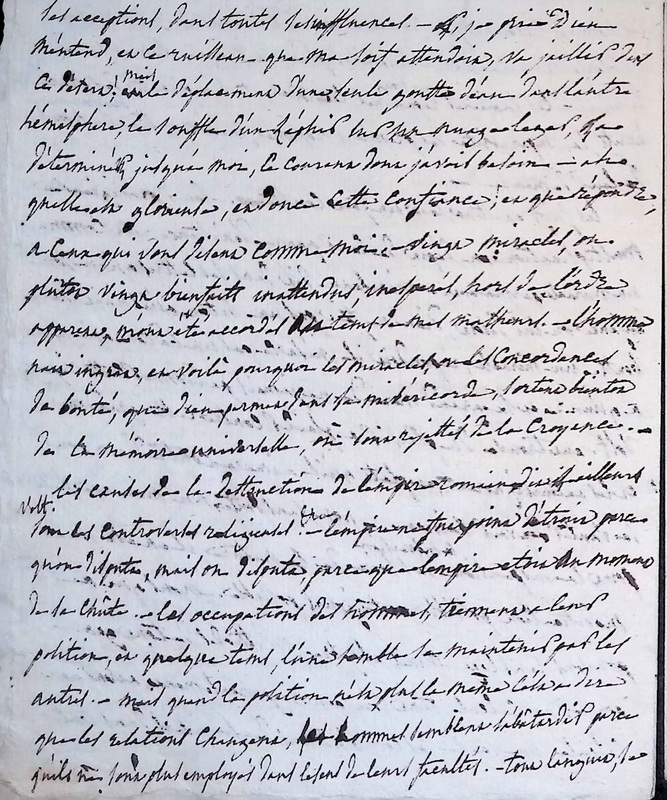 les acceptions, dans toutes les influences. — si, je prie Dieu
m'entend, en ce ruisseau que ma soif attendoit, va jaillir dans
ce désert; mais le déplacement d'une seule goutte d'eau dans l'autre
hémisphère, le souffle d'un Zéphir sur un nuage leger,
déterminés jusqu'a moi, le courant dont j'avois besoin — ah
quelle est glorieuse, et douce cette confiance; et que répondre,
a ceux qui l'ont désert comme moi. — vingt miracles, ou
plutôt vingt bienfaits inattendus, inespérés, hors de l'ordre
apparent, m'ont été accordés au tems de mes malheurs. — l'homme
nait ingrat, et voilà pourquoi les miracles, ou les Concordances
de bonté, que dieu permet dans sa miséricorde, sortent bientot
de la mémoire universelle, ou sont rejettés de la Croyance. —
les causes de la destruction de l'empire romain, dit ailleurs
Volt.
sont les controverses religieuses. — l'empire ne fut point détruit parce
qu'on disputa, mais on disputa parce que l'empire etoit au moment
de sa chûte. — les occupations des hommes, tiennent a leur
position, et quelque tems, l'une semble se maintenir par les
autres. — mais quand la position n'est plus la même c'est a dire
que les relations changent, les hommes semblent s'abâtardir parce
qu'ils ne sont plus employés dans le sens de leurs facultés. — tout languit, se